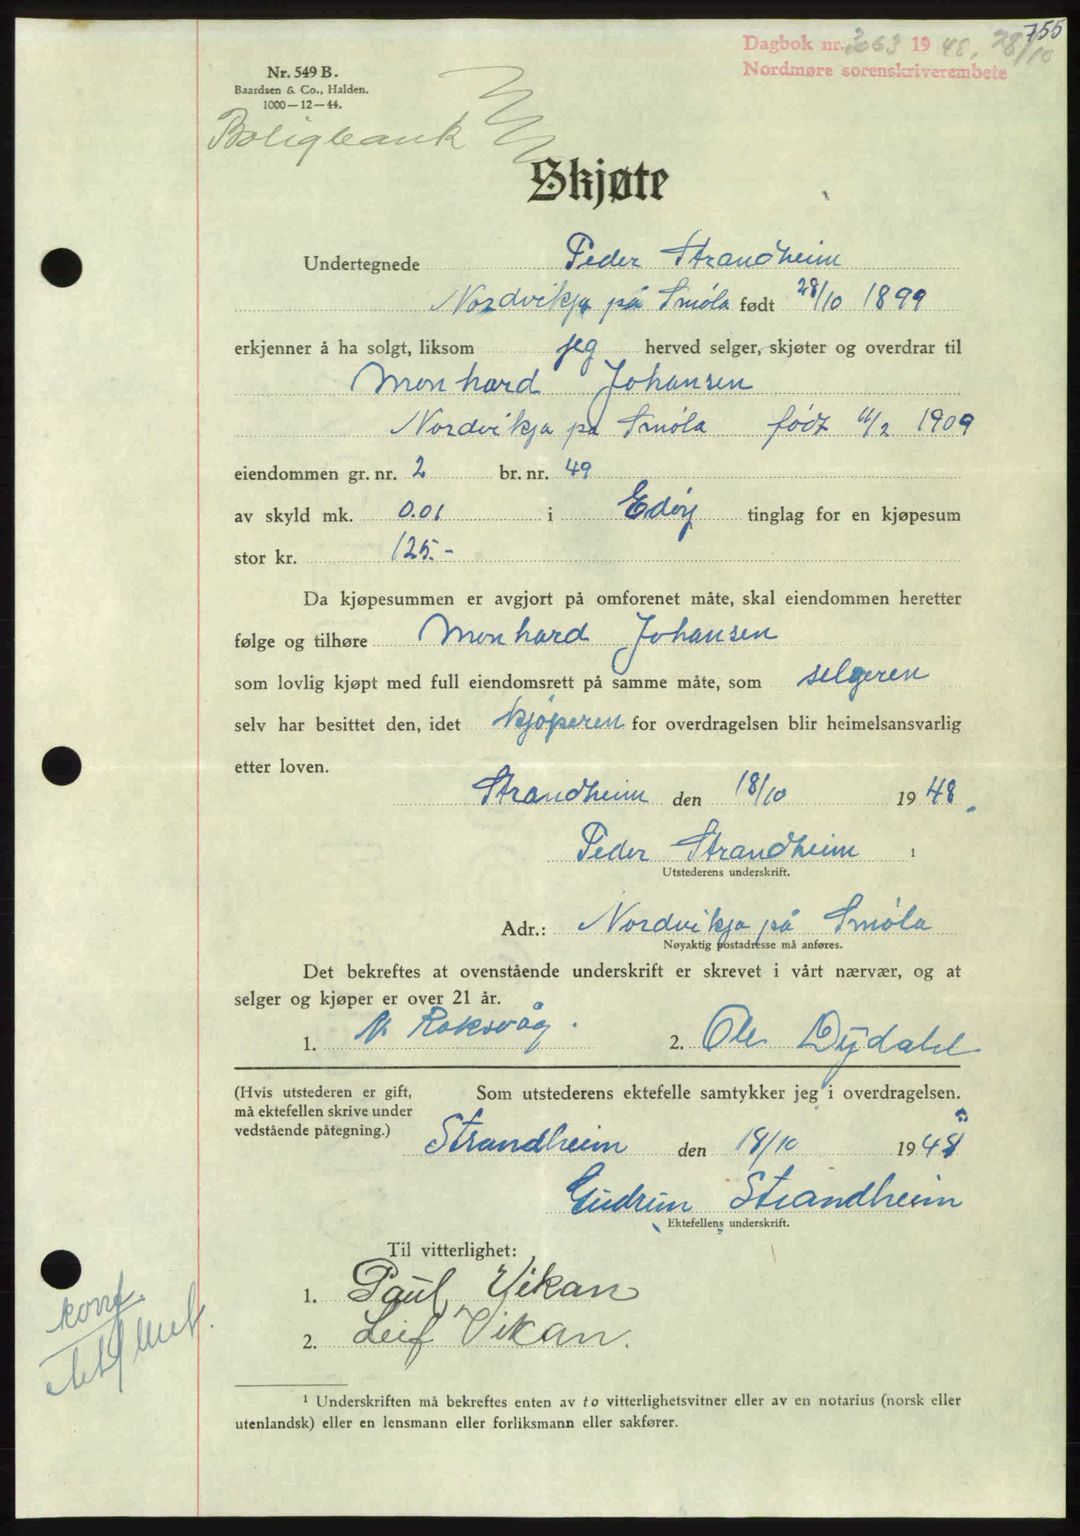 755
Dagbok nr. 3063 19 48. 28/10
Nordmøre sorenskriverembete
Nr. 549 B.
Baardsen & Co., Halden.
1000—12—44.
Boligbank
Skjøte
Undertegnede Peder Strandheim
Nordvikja på Smøla født 28/10 1899
erkjenner å ha solgt, liksom jeg herved selger, skjøter og overdrar til
Monhard Johansen
Nordvikja på Smøla født 11/2 1909
eiendommen gr. nr. 2 br. nr. 49
av skyld mk. 0.01 i Edøy tinglag for en kjøpesum
stor kr. 125.-
Da kjøpesummen er avgjort på omforenet måte, skal eiendommen heretter
følge og tilhøre Monhard Johansen
som lovlig kjøpt med full eiendomsrett på samme måte, som selgeren
selv har besittet den, idet kjøperen for overdragelsen blir heimelsansvarlig
etter loven.
Strandheim den 18/10 1948.
Peder Strandheim 1
Utstederens underskrift.
Adr.: Nordvikja på Smøla
Nøyaktig postadresse må anføres.
Det bekreftes at ovenstående underskrift er skrevet i vårt nærvær, og at
selger og kjøper er over 21 år.
1. Roksvåg. 2. Ole Dydahl
(Hvis utstederen er gift,
må ektefellen skrive under
vedstående påtegning.)
Som utstederens ektefelle samtykker jeg i overdragelsen.
Strandheim den 18/10 1948
Gudrun Strandheim
Ektefellens underskrift.
Til vitterlighet:
1. Paul Vikan
2. Leif Vikan.
konf.
1 Underskriften må bekreftes enten av to vitterlighetsvitner eller av en notarius (norsk eller
utenlandsk) eller en lensmann eller forliksmann eller sakfører.